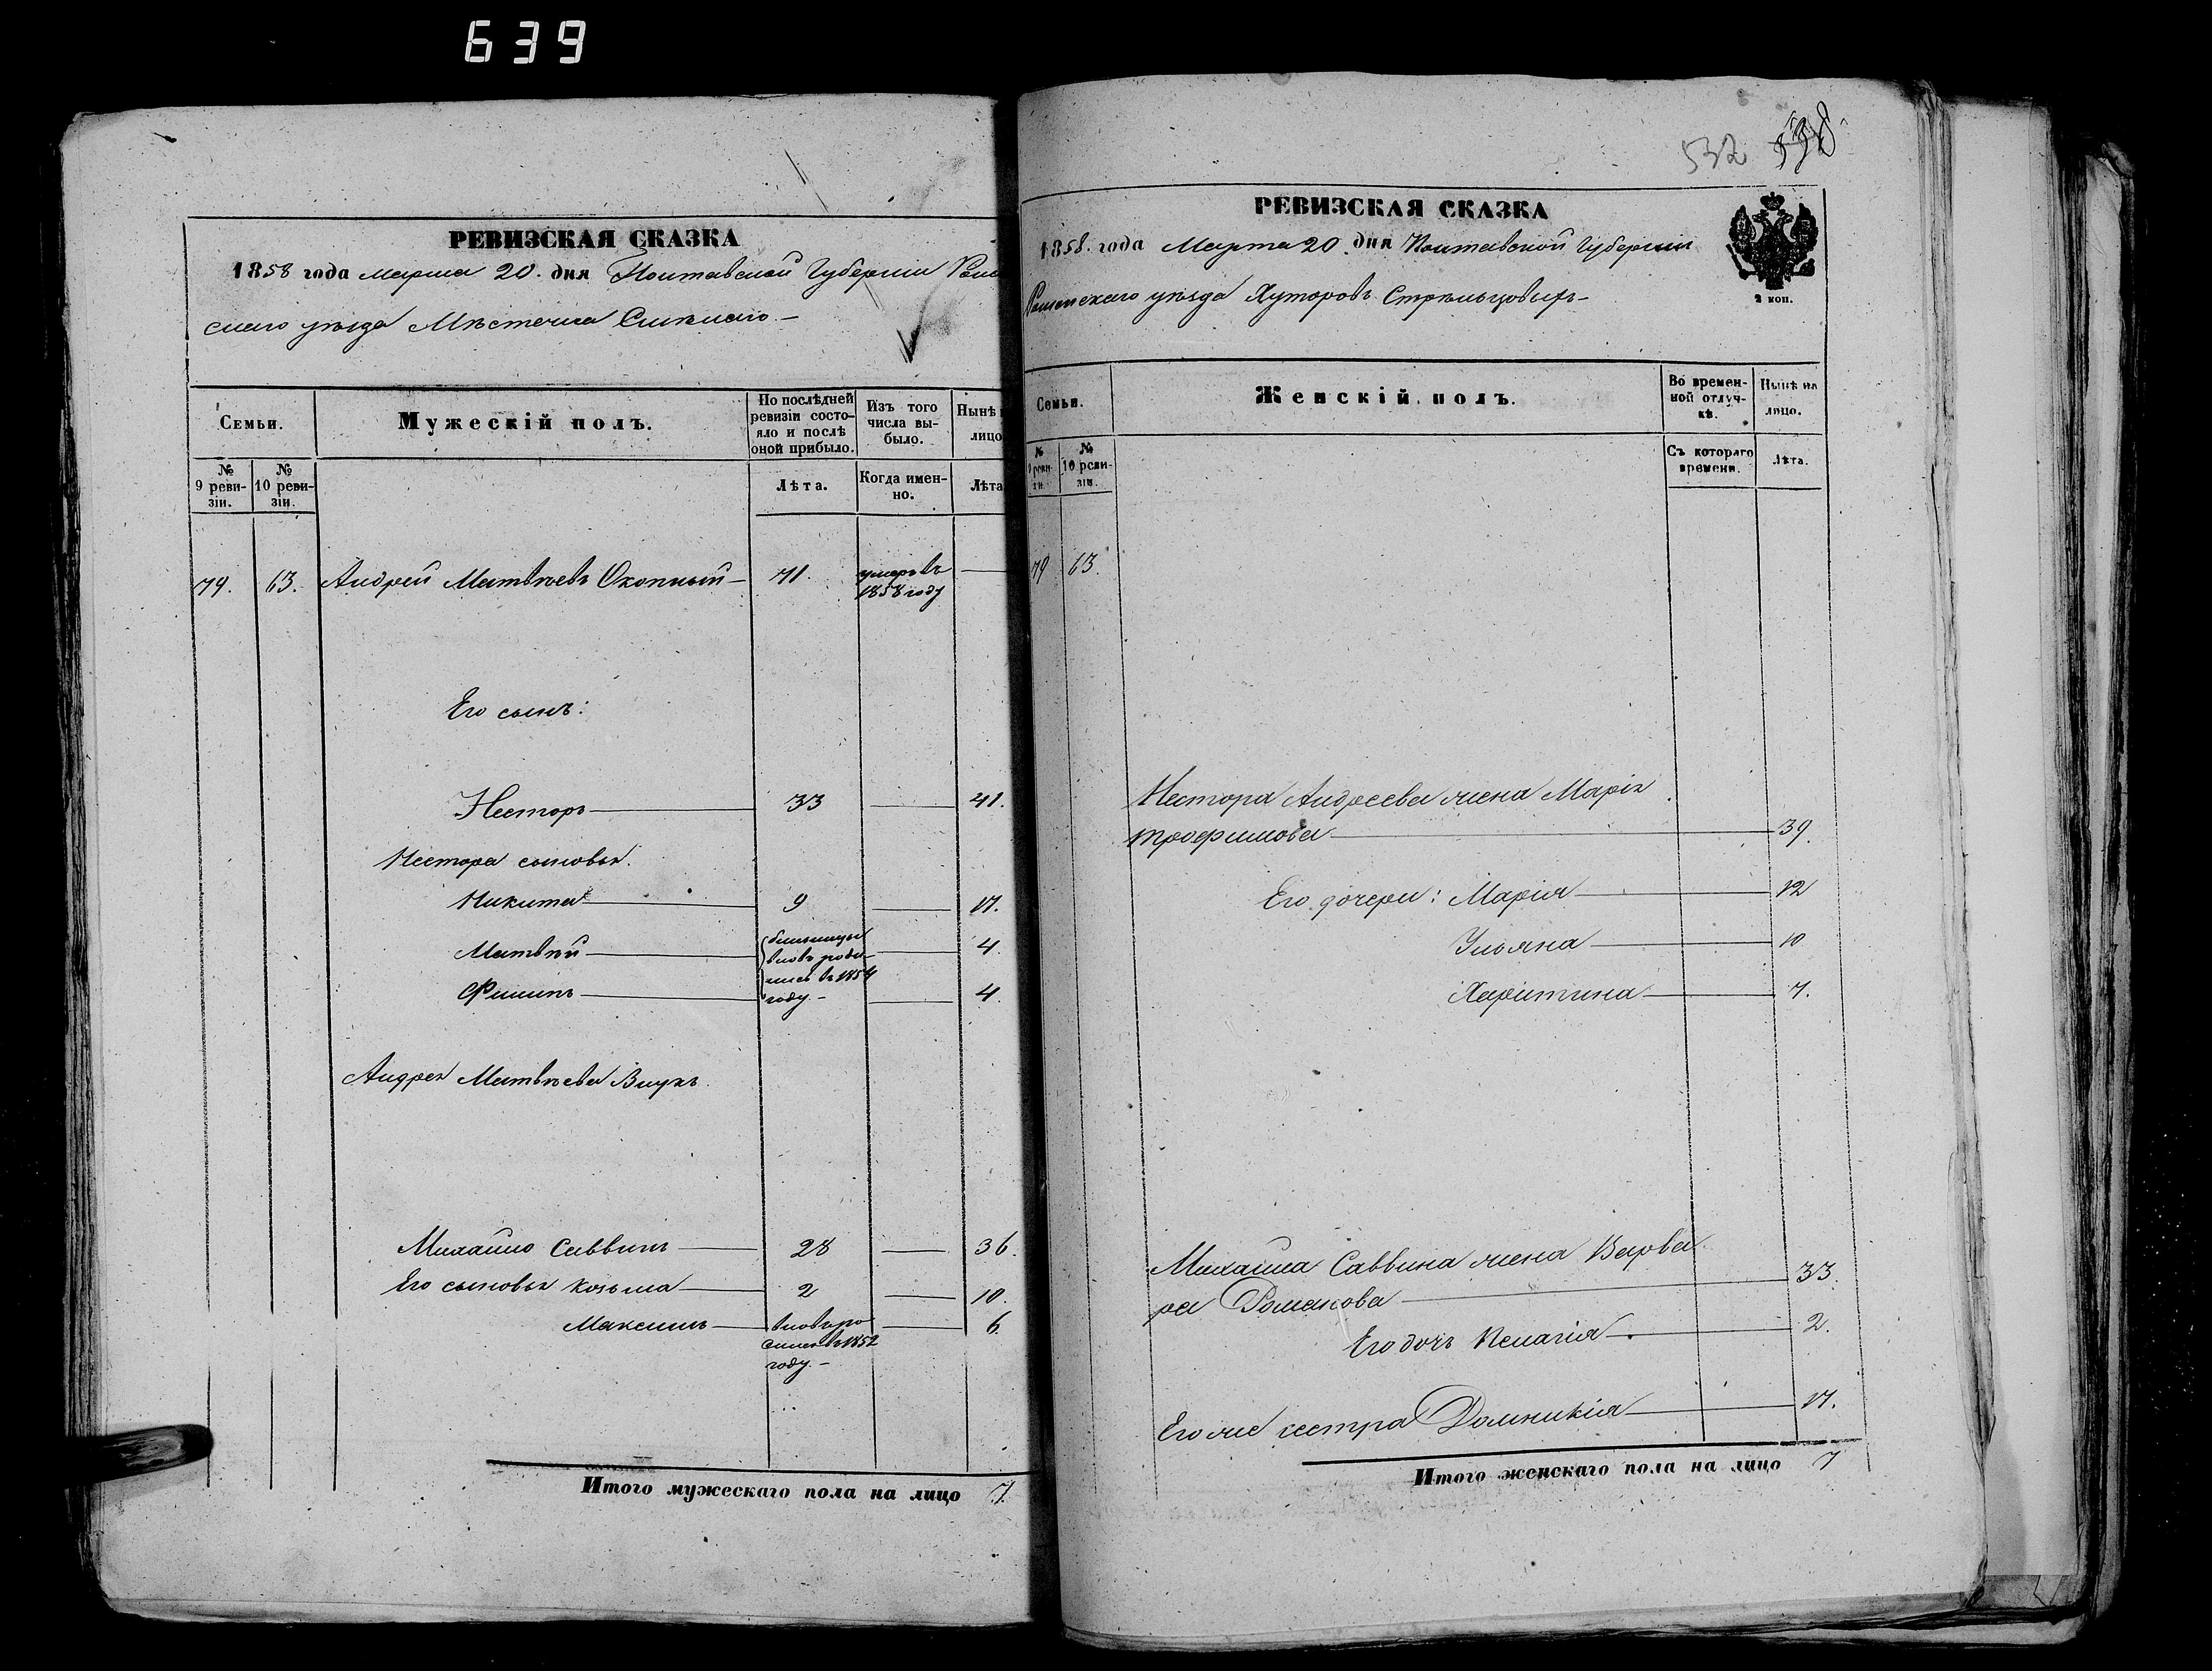 639
РЕВИЗСКАЯ СКАЗКА
1858 года марта 20. дня Полтавской Губерніи Ром
скаго уѣзда Мѣстечка Смѣлаго.—
Семьи.
Мужескій полъ.
По послѣдней ревизіи состояло и послѣ оной прибыло.
Изъ того числа выбыло.
Нынѣ
лицо
№ 9 ревизіи.
№ 10 ревизіи.
Лѣта.
Когда именно.
Лѣта
79. 63. Андрей Матвѣевъ Окопный— 71. умеръ въ —
1858 году
Его сынъ:
Несторъ— 33 — 41.
Нестора сыновья.
Никита— 9 — 17.
Матвѣй— близнецы — 4.
вновь роди-
Филипъ— лись въ 1854 — 4.
году.—
Андрея Матвѣева Внукъ.
Михайло Саввинъ— 28 — 36.
Его сыновья Козьма— 2 — 10.
Максимъ— — 6.
1852
году.—
Итого мужескаго пола на лицо 7.
532 538
РЕВИЗСКАЯ СКАЗКА
1858. года Марта 20. дня Полтавской Губерніи
Роменскаго уѣзда Хуторовъ Стрѣльцовыхъ—
2 коп.
Семьи.
Женскій полъ.
Во временной отлучкѣ.
Нынѣ на лицо.
№ 9 ревизіи.
№ 10 ревизіи.
Съ котораго времени.
Лѣта.
79 63.
Нестора Андреева жена Марія
трофимова— 39.
Его дочери: Марія— 12
Ульяна— 10
Харитина— 7.
Михайла Саввина жена Варва
ра Романова— 33.
Его дочь Пелагія— 2.
Его же сестра Домникія— 17.
Итого женскаго пола на лицо 7